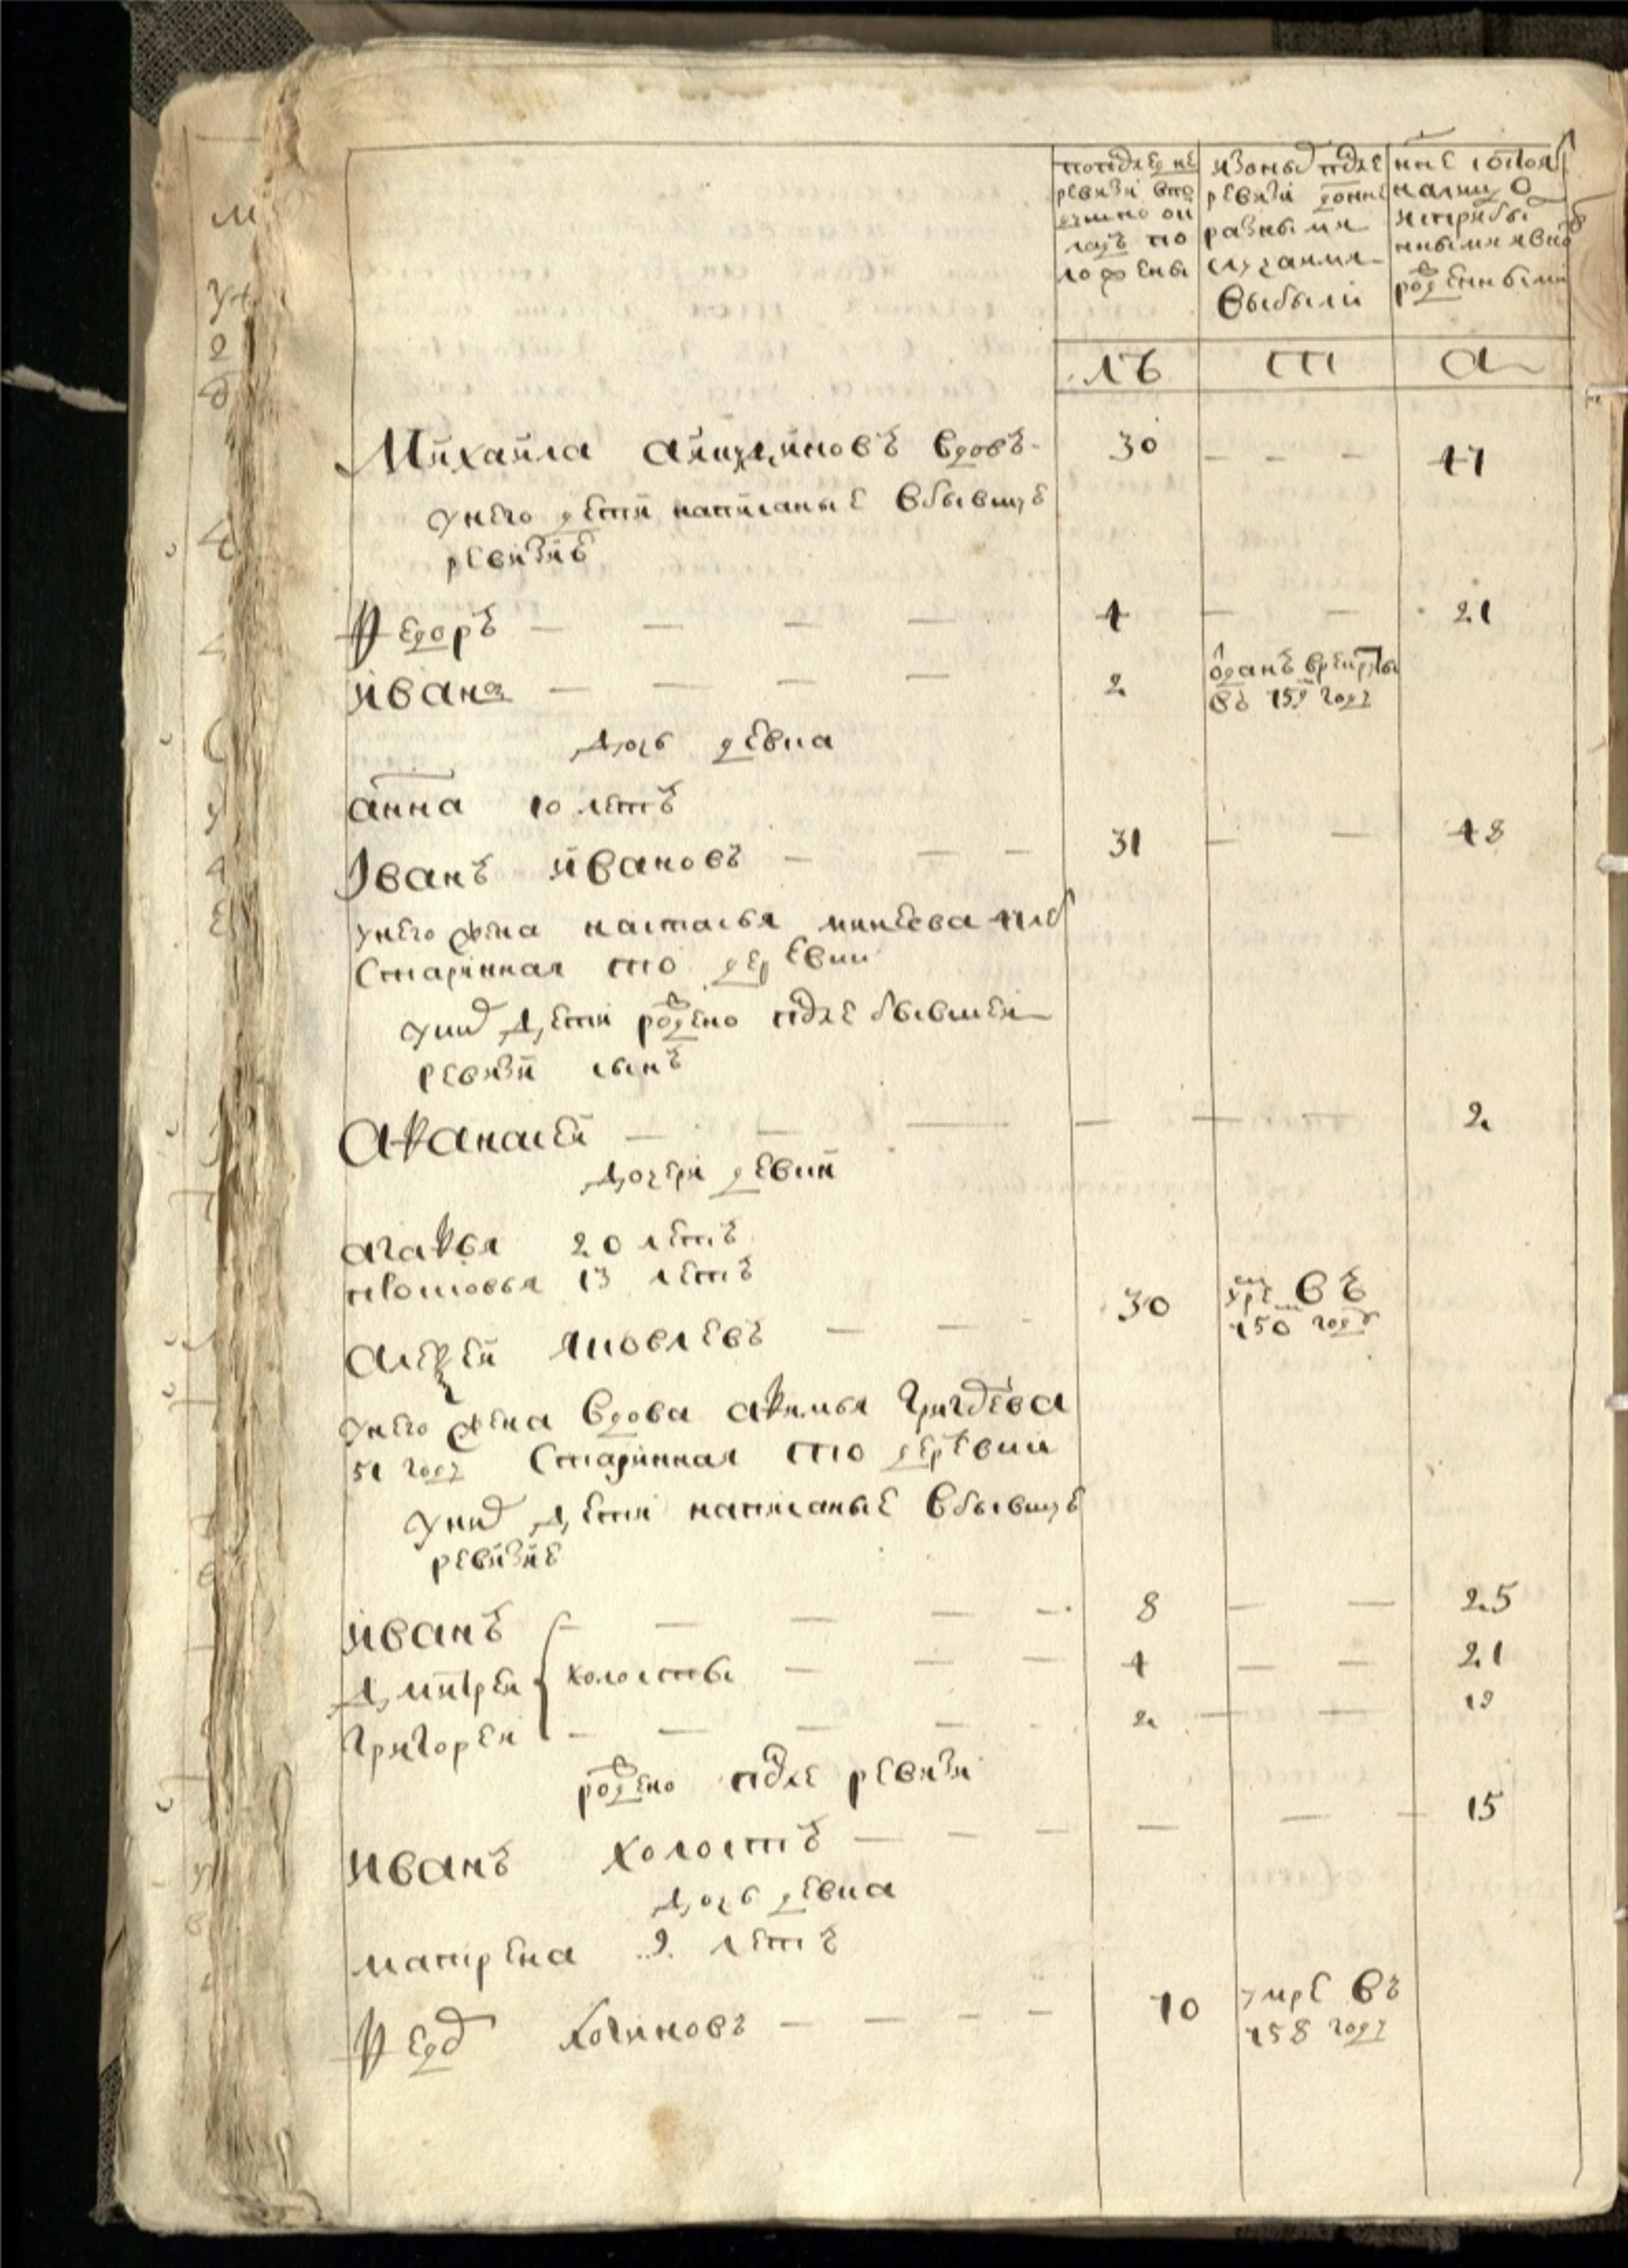 попослѣдне
ревизи впо
душно ои
ладъ по
ложены
изоныхъ после
ревизи донне
разными
случаями
выбыли
ныне состоя
налицо
исприбы
ными явно
рожденными
лѣ
ті
а
Михайла вдовъ
унего дети написаные вбывшую
ревизию
Федоръ 4 21
Ивана 2 отданъ врекруты
въ 759 году
дочь девка
анна 10 летъ
Иванъ ивановъ 31 48
унего жена настасья минеева
старинная тоі деревни
уних дети рождено после бывшеи
ревизи сынъ
Афанасеи 2
дочери девки
агафья 20 летъ
13 летъ
Алексеи яковлевъ 30 умре въ
750 году
унего жена вдова афимья григорьева
51 году старинная тоі деревни
уних дети написаные вбывшую
ревизию
иванъ 8 25
дмитреи холосты 4 21
григореи 2 19
рождено после ревизи
иванъ холостъ 15
дочь девка
матрена 9 летъ
Федор логиновъ 70 умре въ
758 году